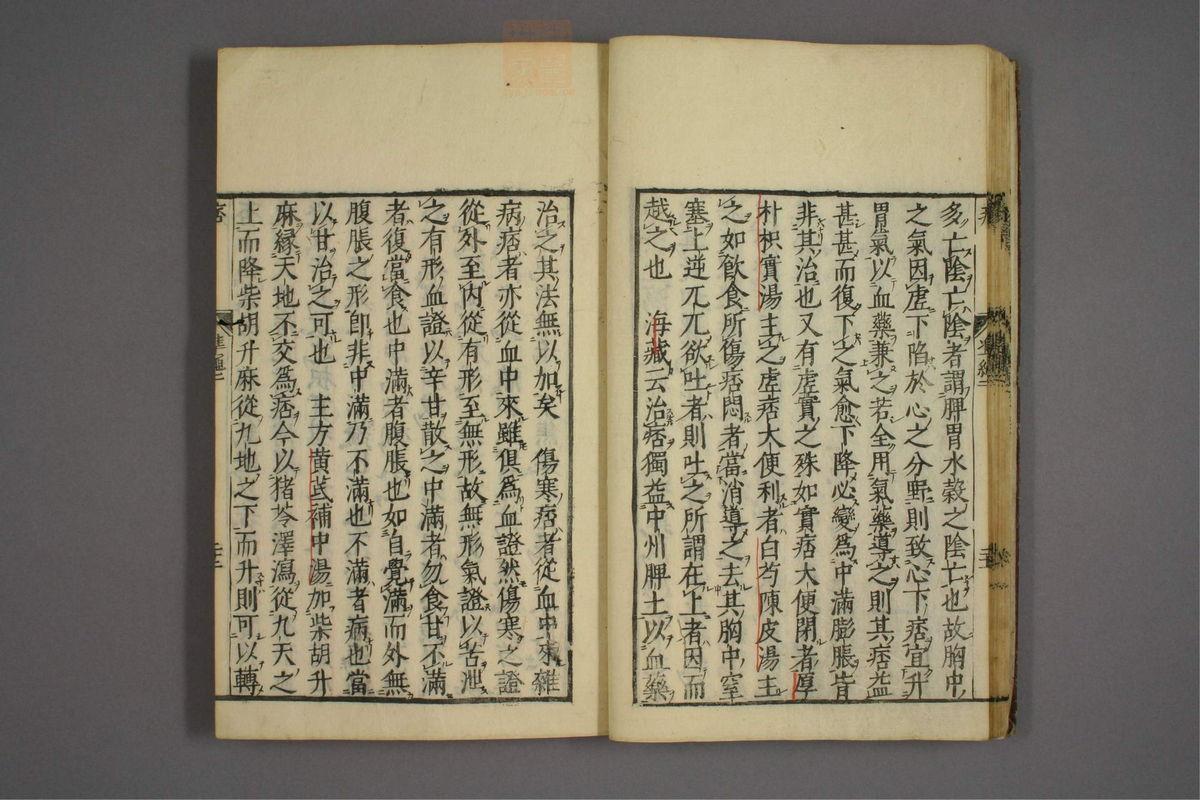 多亡陰亡陰者謂脾胃水穀之陰亡也故胸中
之氣因虛下陷於心之分野則致心下痞宜升
胃氣以血藥兼之若全用氣藥導之則其痞益
甚甚而復下之氣愈下降必變爲中滿膨脹皆
非其治也又有虛實之殊如實痞大便閉者厚
朴枳實湯主之虛痞大便利者白芍陳皮湯主
之如飲食所傷痞悶者當消導之去其胸中窒
塞上逆兀兀欲吐者則吐之所謂在上者因而
越之也 海藏云治痞獨益中州脾土以血藥
治之其法無以加矣 傷寒痞者從血中來雜
病痞者亦從血中來雖俱爲血證然傷寒之證
從外至内從有形至無形故無形氣證以苦泄
之有形血證以辛甘散之中滿者勿食甘不滿
者復當食也中滿者腹脹也如自覺滿而外無
腹脹之形卽非中滿乃不滿也不滿者病也當
以甘治之可也 主方黄芪補中湯加柴胡升
麻縁天地不交爲痞今以猪苓澤瀉從九天之
上而降柴胡升麻從九地之下而升則可以轉